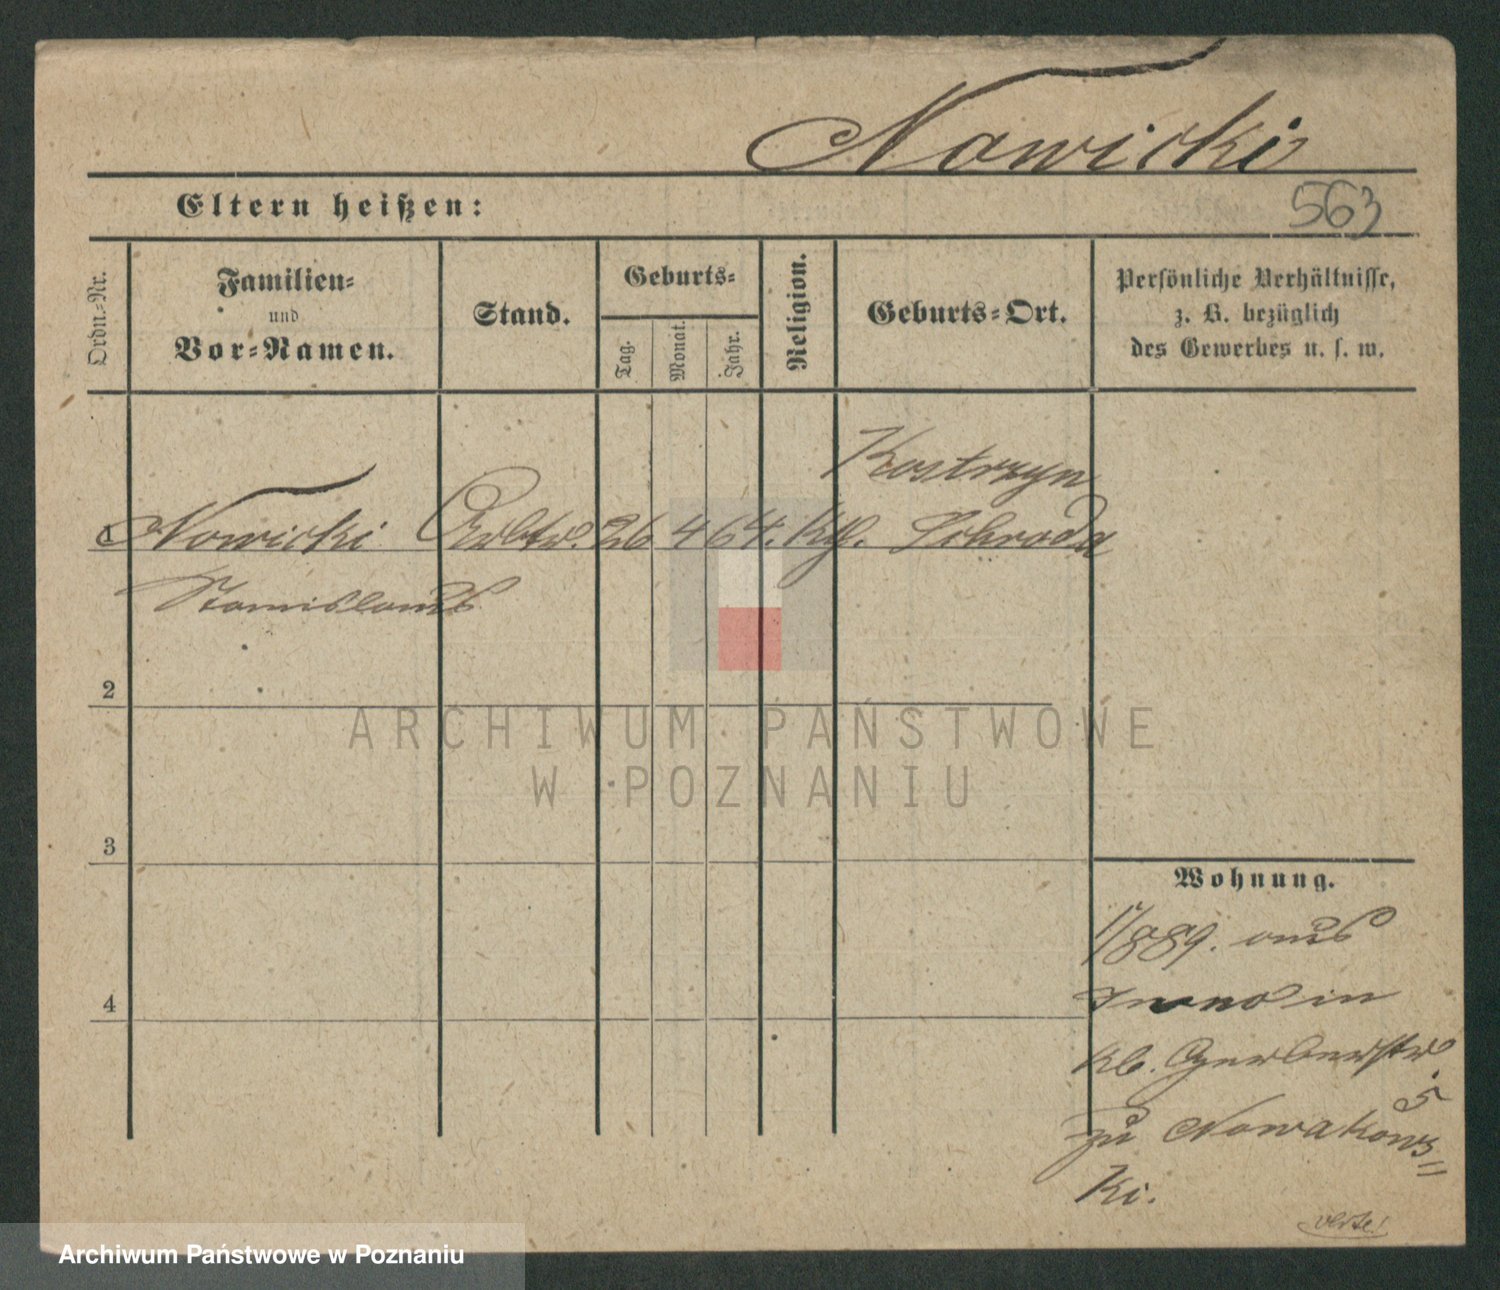 Nowicki
Eltern heißen:
563
Ordn.-Nr.
Familien-
und
Vor-Namen.
Stand.
Geburts-
Tag.
Monat.
Jahr.
Religion.
Geburts-Ort.
Persönliche Verhältnisse,
z. B. bezüglich
des Gewerbes u. s. w.
Kostrzyn
1 Nowicki Arbtr. 26 4 64. Kth. Schroda
Stanislaus
2
3
4
Wohnung.
1/889. aus
in
Kl. Gerberstr.
5
zu Nowakows=
ki.
verte!
ARCHIWUM PAŃSTWOWE
W POZNANIU
Archiwum Państwowe w Poznaniu